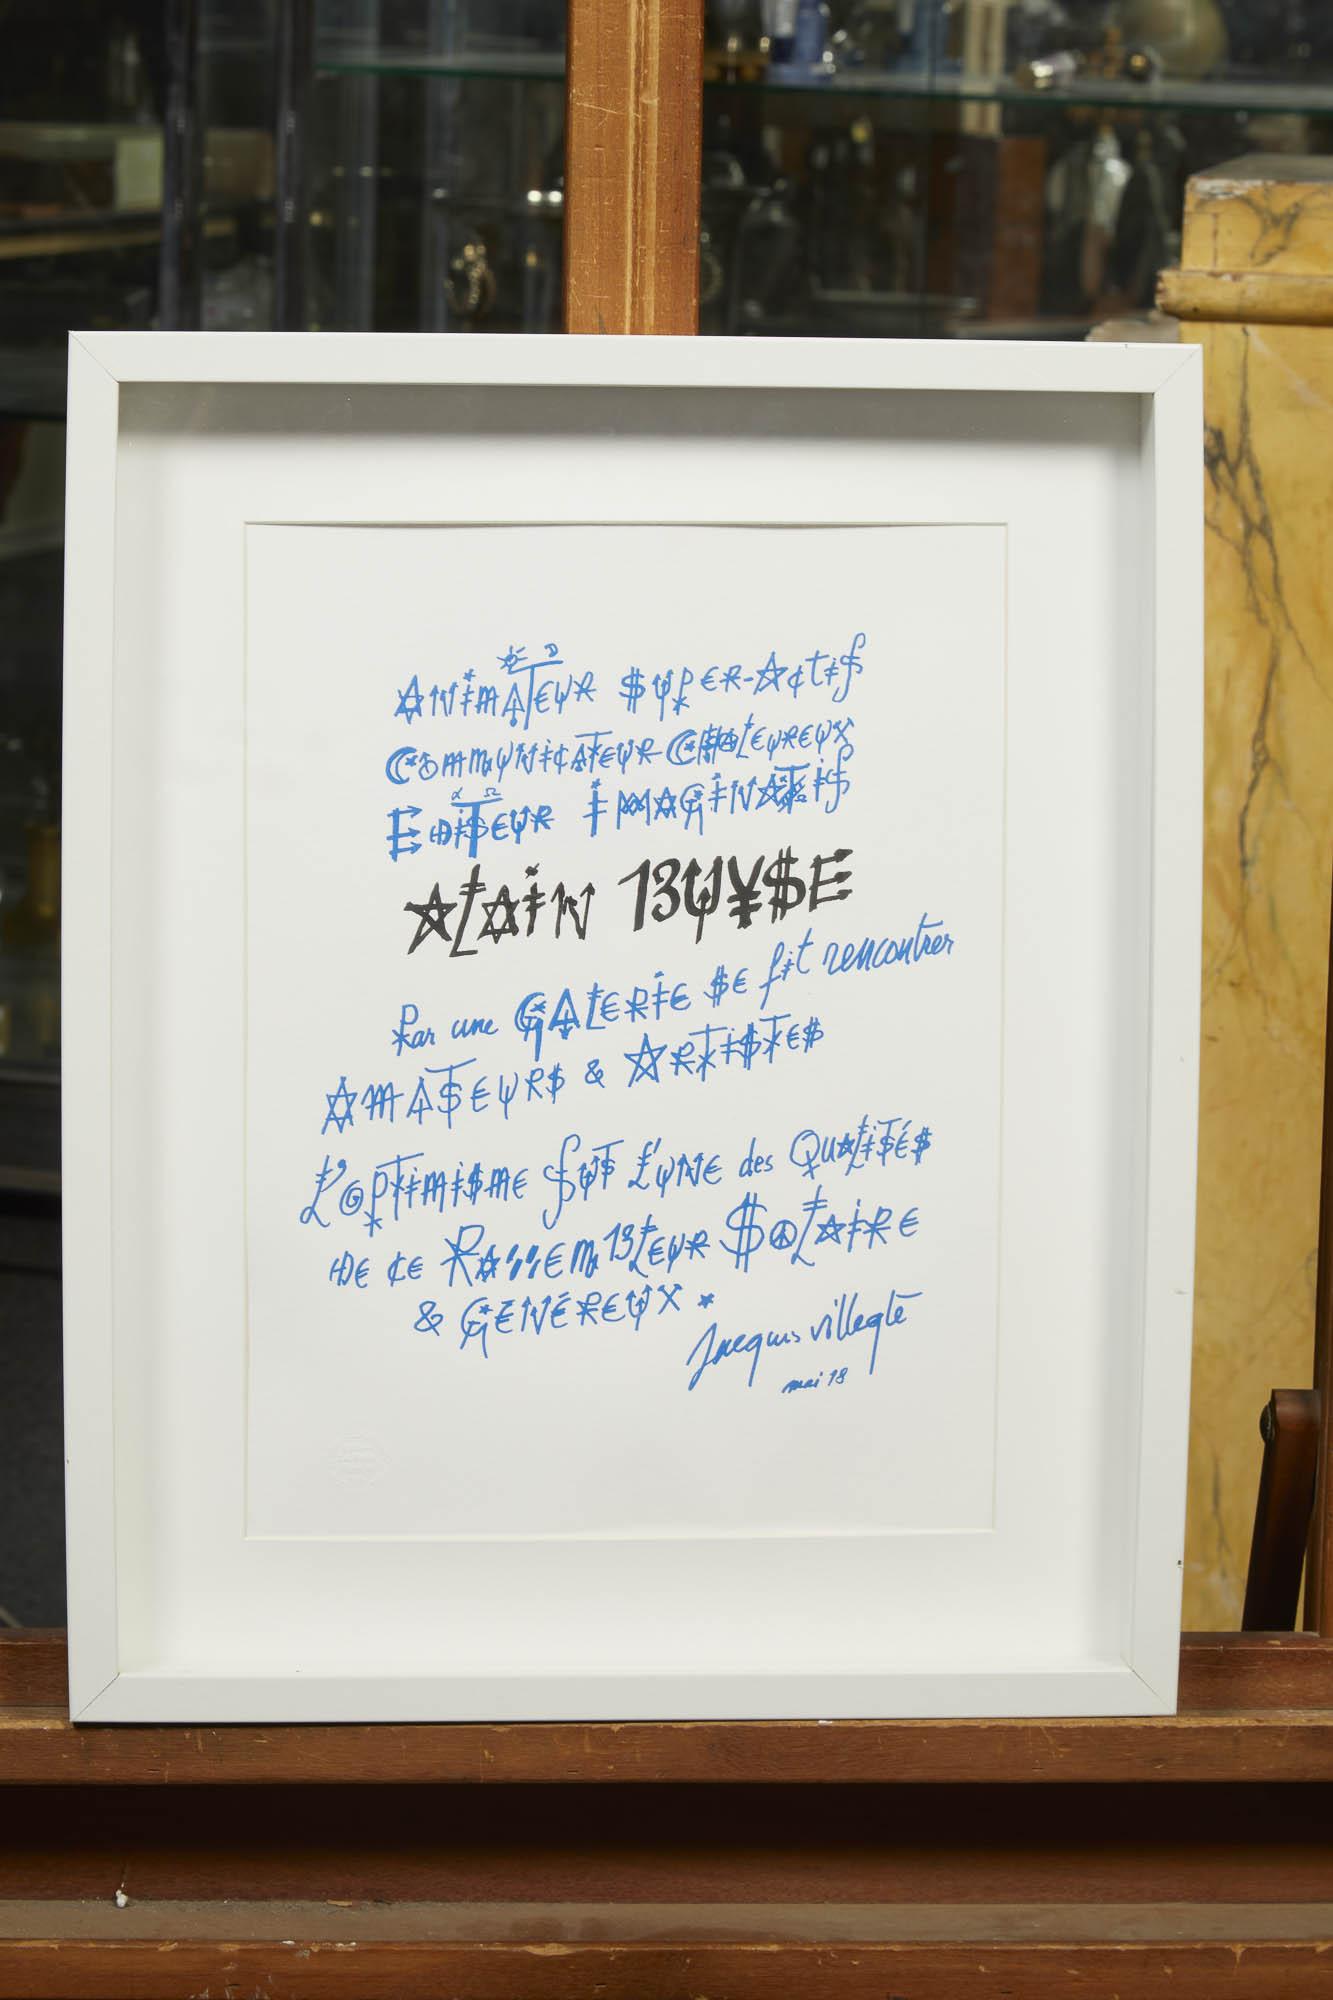 ANIMATEUR SUPER-ACTIF
COMMUNICATEUR CHALEUREUX
EDITEUR IMAGINATIF
ALAIN BUYSE
Par une GALERIE SE fit rencontrer
AMATEURS & ARTISTES
L'OPTIMISME FUT L'UNE des QUALITÉS
DE CE RASSEMBLEUR SOLAIRE
& GÉNÉREUX.
Jacques villeglé
mai 18